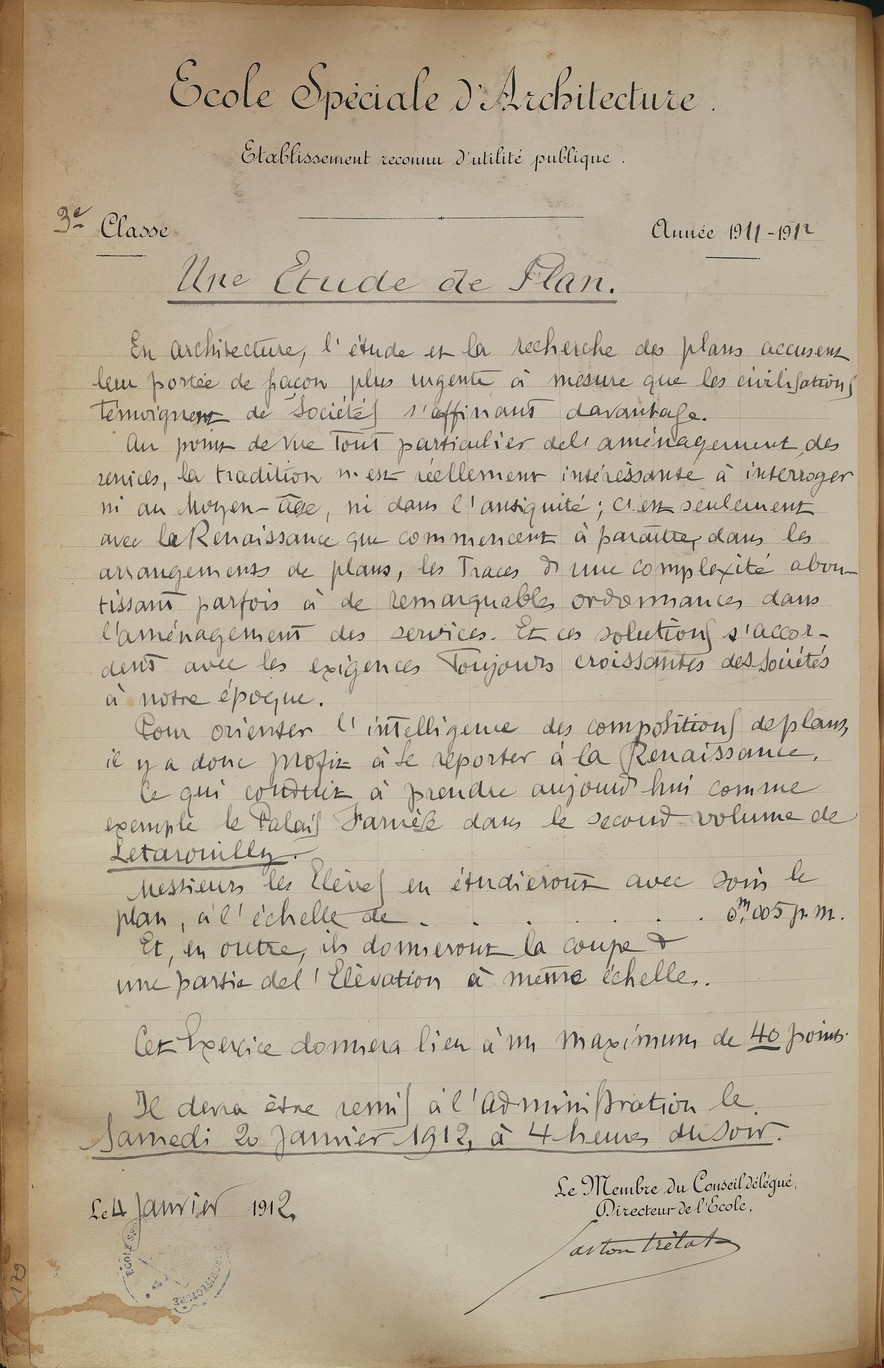 Ecole Spéciale d'Architecture.
Etablissement reconnu d'utilité publique.
3e Classe
Année 1911-1912
Une Etude de Plan.
En architecture, l'étude et la recherche des plans accusent
leur portée de façon plus urgente à mesure que les civilisations
témoignent de Sociétés s'affinant davantage.
Au point de vue Tout particulier de l'aménagement des
services, la tradition n'est réellement intéressante à interroger
ni au Moyen-âge, ni dans l'antiquité ; c'est seulement
avec la Renaissance que commencent à paraître, dans les
arrangements de plans, les Traces d'une complexité abou-
tissant parfois à de remarquables ordonnances dans
l'aménagement des services. Et ces solutions s'accor-
dent avec les exigences Toujours croissantes des Sociétés
à notre époque.
Pour orienter l'intelligence des compositions de plans,
il y a donc profit à se reporter à la Renaissance.
Ce qui conduit à prendre aujourd'hui comme
exemple le Palais Farnèse dans le second volume de
Letarouilly.
Messieurs les Elèves en étudieront avec soin le
plan, à l'échelle de . . . . . . . 0m,005 p. m.
Et, en outre, ils donneront la coupe &
une partie de l'Elévation à même échelle.
Cet Exercice donnera lieu à un maximum de 40 points.
Il devra être remis à l'Administration le
Samedi 20 Janvier 1912, à 4 heures du Soir.
Le 4 Janvier 1912,
Le Membre du Conseil délégué,
Directeur de l'Ecole,
Gaston Trélat
179